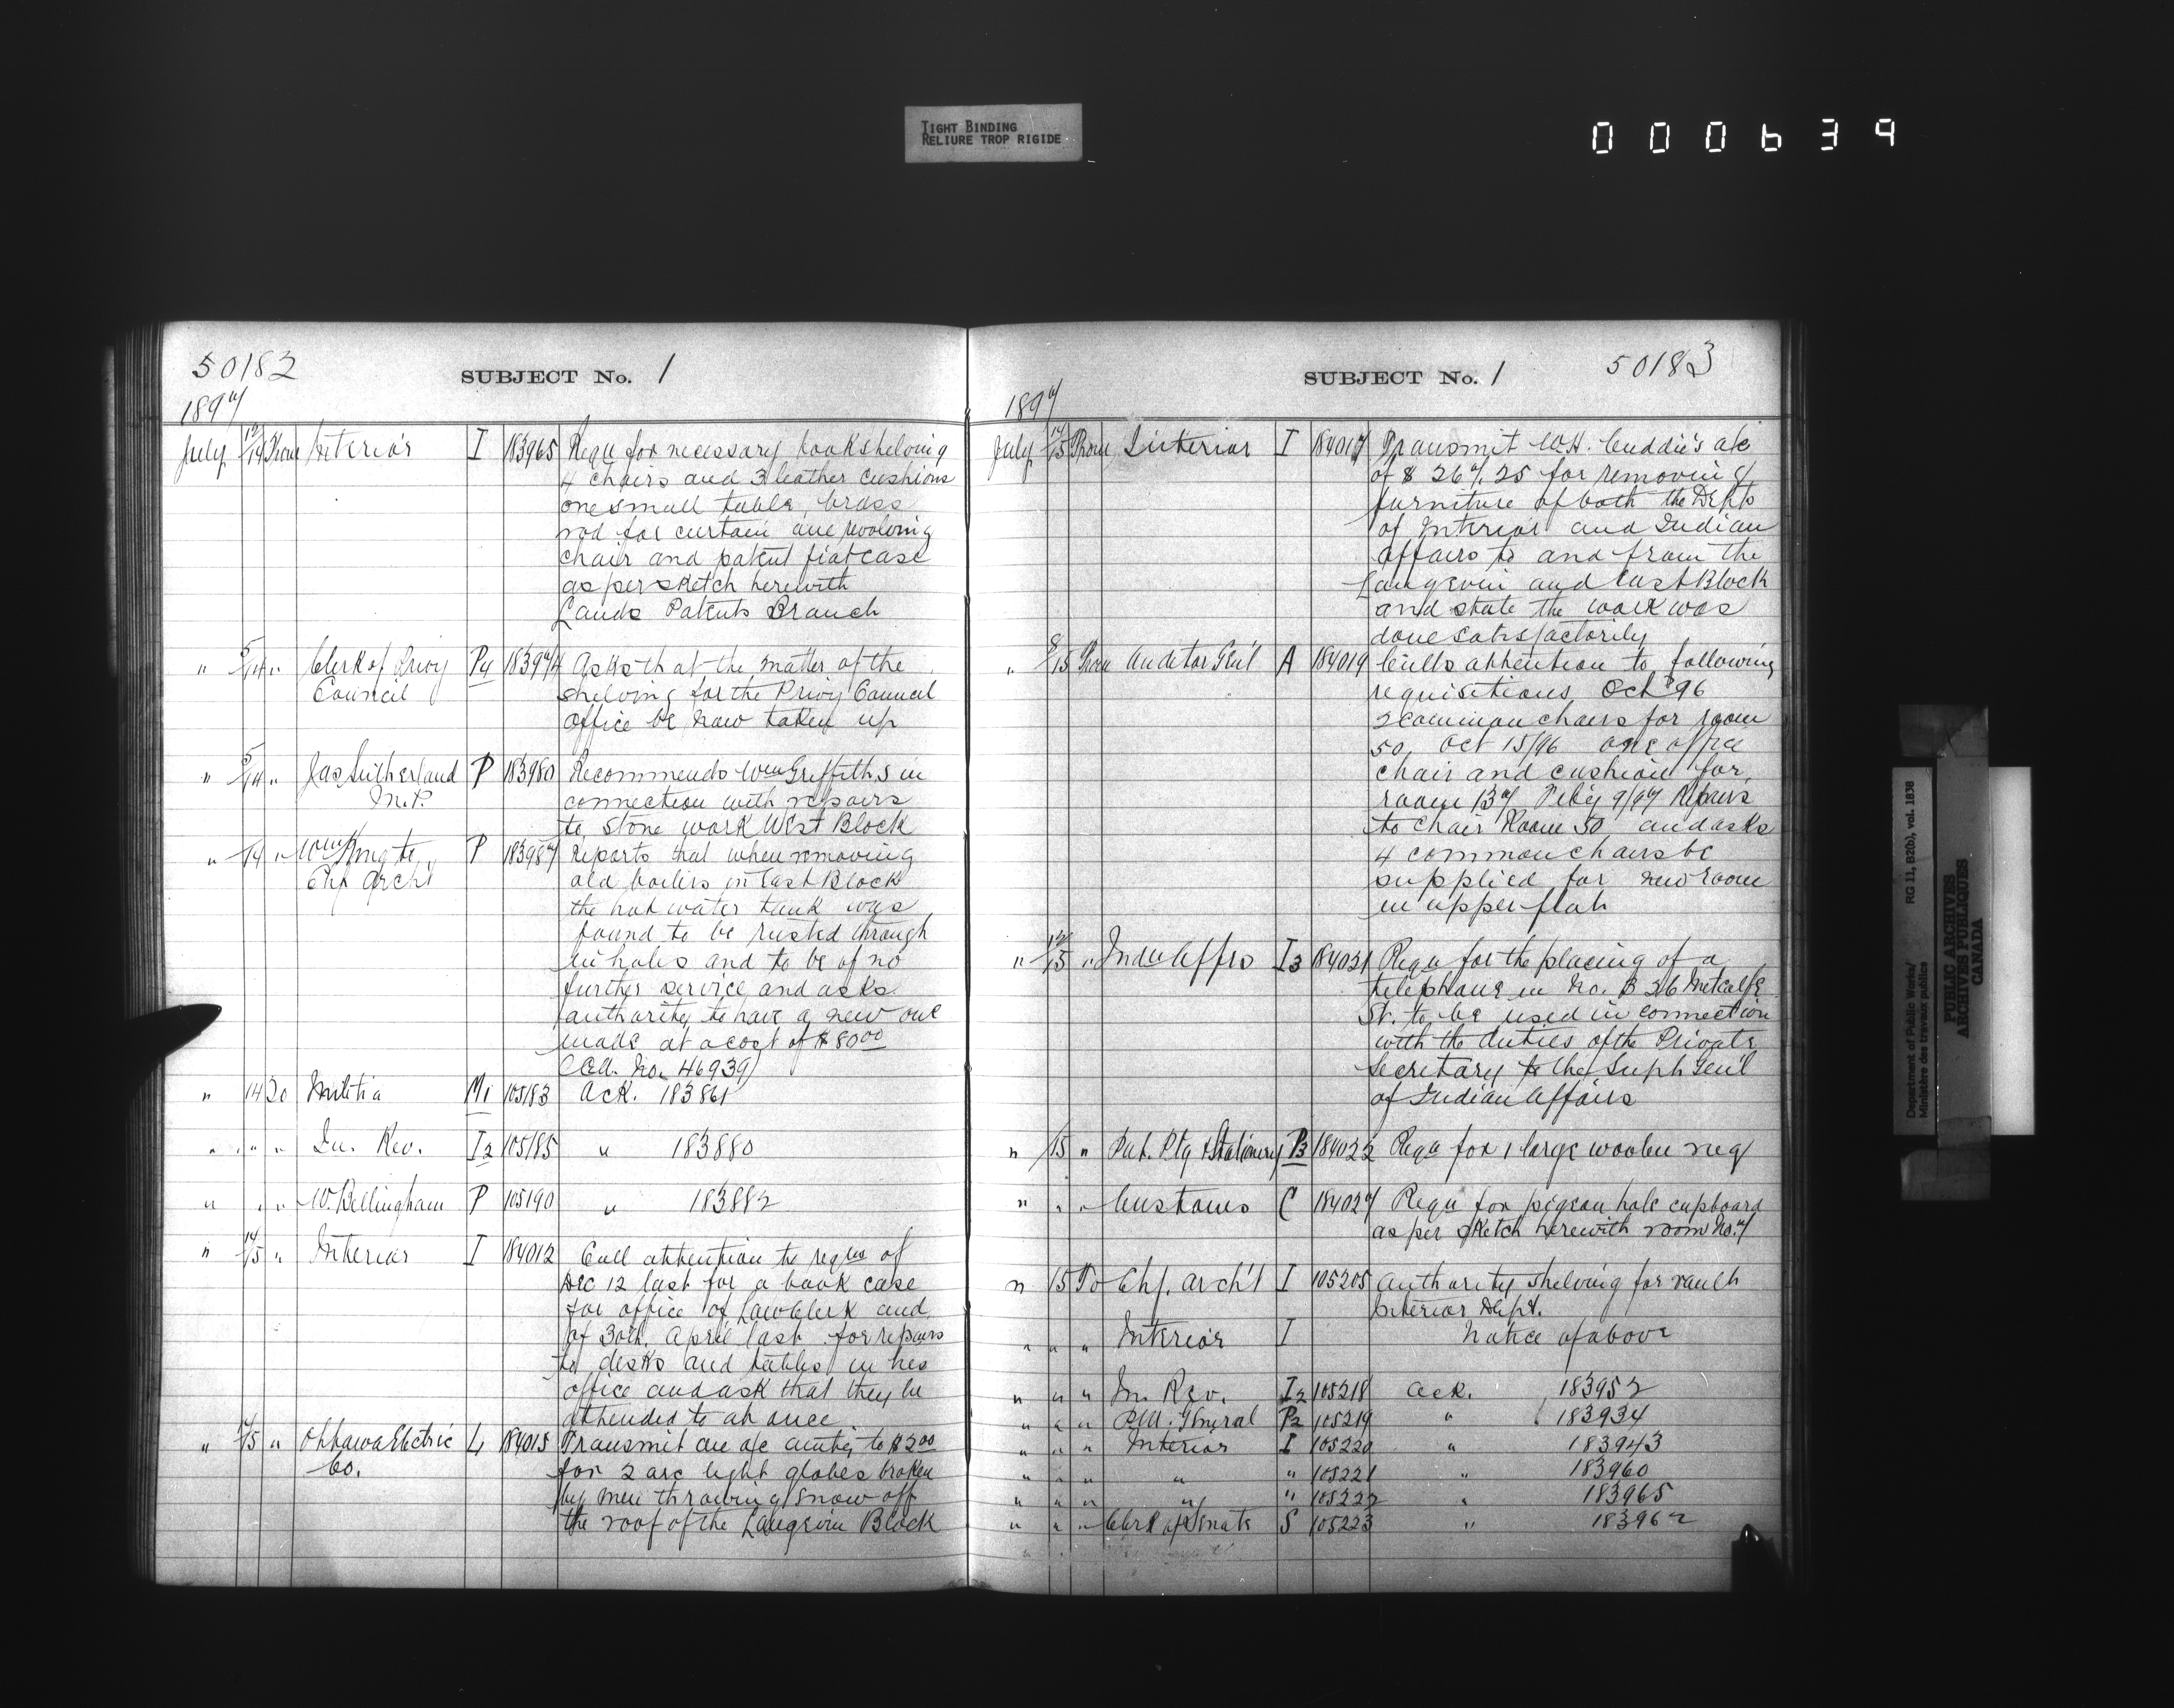 TIGHT BINDING
RELIURE TROP RIGIDE
000639
50182
SUBJECT No. 1
1897
July 12/14 From Interior I 183965 Requ for necessary book shelving
4 chairs and 3 leather cushions
one small table, brass
rod for curtain one revolving
chair and patent fiat case
as per sketch herewith
Lands Patents Branch
" 5/14 " Clerk of Privy P4 183974 Asks that the matter of the
Council shelving for the Privy Council
office be now taken up
" 5/14 " Jas Sutherland P 183980 Recommends Wm Griffiths in
M.P. connection with repairs
to stone work West Block
" /14 " P 183987 Reports that when removing
Chf Archt old boilers in East Block
the hot water tank was
found to be rusted through
in holes and to be of no
further service and asks
authority to have a new one
made at a cost of $80 00
No. 46939
" 14 To Militia M1 105183 Ack. 183861
" " " In. Rev. I2 105185 " 183880
" " " W. Bellingham P 105190 " 183882
" 14/15 " Interior I 184012 Call attention to requs of
Dec 12 last for a book case
for office of Law Clerk and
of 30th April last for repairs
to desks and tables in his
office and ask that they be
attended to at once
" 14/15 " Ottawa Electric L 184015 Transmit an a/c amtg to $2 00
Co. for 2 arc light globes broken
by men throwing snow off
the roof of the Langevin Block
SUBJECT No. 1
50183
1897
July 14/15 From Interior I 184017 Transmit W.H. Cuddie's a/c
of $ 267.25 for removing
furniture of both the Depts
of Interior and Indian
Affairs to and from the
Langevin and East Block
and state the work was
done satisfactorily
" 8/15 From Auditor Gen'l A 184019 Calls attention to following
requisitions Oct '96
2 common chairs for room
50, Oct 15/96 one office
chair and cushion for
room 137 Feby 9/97 Repairs
to chair Room 50 and asks
4 common chairs be
supplied for new room
in upper flat
" 12/15 " Indn Affrs I3 184021 Requ for the placing of a
telephone in No. B 26 Metcalfe
St. to be used in connection
with the duties of the Private
Secretary to the Supt Gen'l
of Indian Affairs
" 15 " Pub. Ptg & Stationery P3 184022 Requ for 1 large woolen rug
" " " Customs C 184027 Requ for pigeon hole cupboard
as per sketch herewith room No. 7
" 15 To Chf. Arch't I 105205 Authority shelving for vault
Interior Dept.
" " " Interior I Notice of above
" " " In. Rev. I2 105218 Ack. 183952
" " " General P2 105219 " 183934
" " " Interior I 105220 " 183943
" " " " " 105221 " 183960
" " " " " 105222 " 183965
" " " Clerk of Senate S 105223 " 183962
Department of Public Works/
Ministère des travaux publics
RG 11, B2(b), vol. 1838
PUBLIC ARCHIVES
ARCHIVES PUBLIQUES
CANADA